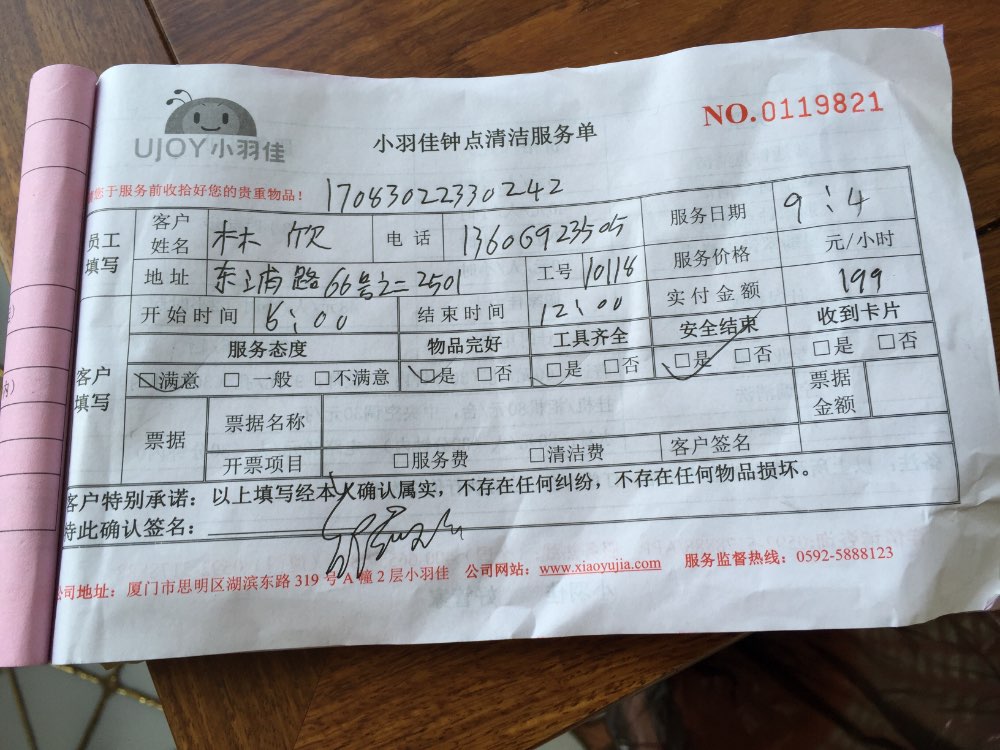 UJOY小羽佳
小羽佳钟点清洁服务单
NO.0119821
您于服务前收拾好您的贵重物品！
17083022330242
员工填写 客户姓名 林欣 电话 13606923505 服务日期 9:4
地址 东浦路66号之二2501 工号 10118 服务价格 元/小时
客户填写 开始时间 6:00 结束时间 12:00 实付金额 199
服务态度 物品完好 工具齐全 安全结束 收到卡片
☐满意 ☐一般 ☐不满意 ☐是 ☐否 ☐是 ☐否 ☐是 ☐否 ☐是 ☐否
票据 票据名称 票据金额
开票项目 ☐服务费 ☐清洁费 客户签名
客户特别承诺：以上填写经本人确认属实，不存在任何纠纷，不存在任何物品损坏。
特此确认签名：
公司地址：厦门市思明区湖滨东路 319 号 A 幢 2 层小羽佳 公司网站：www.xiaoyujia.com 服务监督热线：0592-5888123